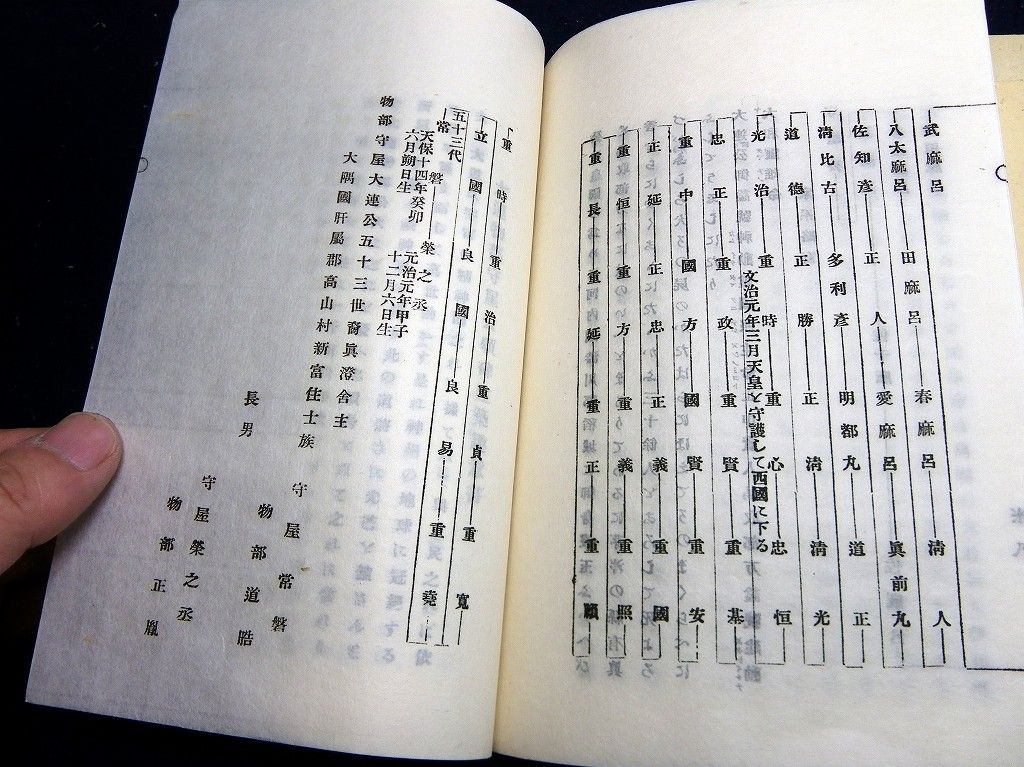 武麻呂 田麻呂 春麻呂 清人
八太麻呂 愛麻呂 眞前九
佐知彦 正人 明都九 道正
清比古 多利彦 清光
道德 正勝 正清 忠恒
光治 重時 重心
文治元年三月天皇と守護して西國に下る
忠正 重政 重賢 重基
重中 國方 國賢 重安
正延 正忠 正義 重國
重恒 重方 重義 重照
重長 重延 重正 重願
重時 重治 重貞 重寬
立國 良國 良易 重堯
五十三代
常磐 榮之丞
天保十四年癸卯 元治元年甲子
六月朔日生 十二月六日生
物部守屋大連公五十三世裔眞澄舍主
大隅國肝屬郡高山村新富住士族
守屋常磐
物部道晧
長男
守屋榮之丞
物部正胤